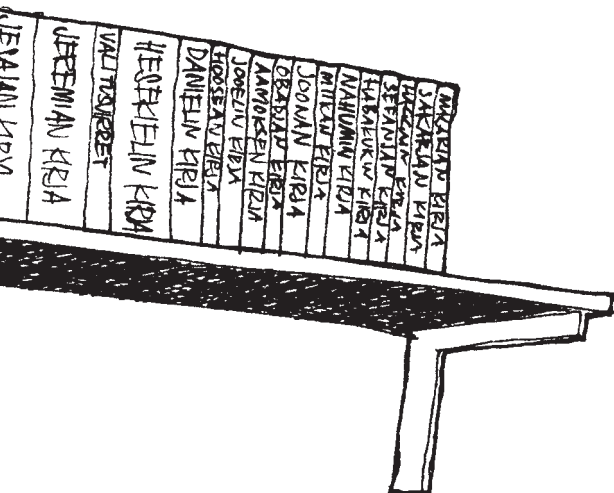 JESAJAN KIRJA
JEREMIAN KIRJA
VALITUSVIRRET
HESEKIELIN KIRJA
DANIELIN KIRJA
HOOSEAN KIRJA
JOOELIN KIRJA
AAMOKSEN KIRJA
OBADJAN KIRJA
JOONAN KIRJA
MIIKAN KIRJA
NAHUMIN KIRJA
HABAKUKIN KIRJA
SEFANJAN KIRJA
HAGGAIN KIRJA
SAKARJAN KIRJA
MALAKIAN KIRJA